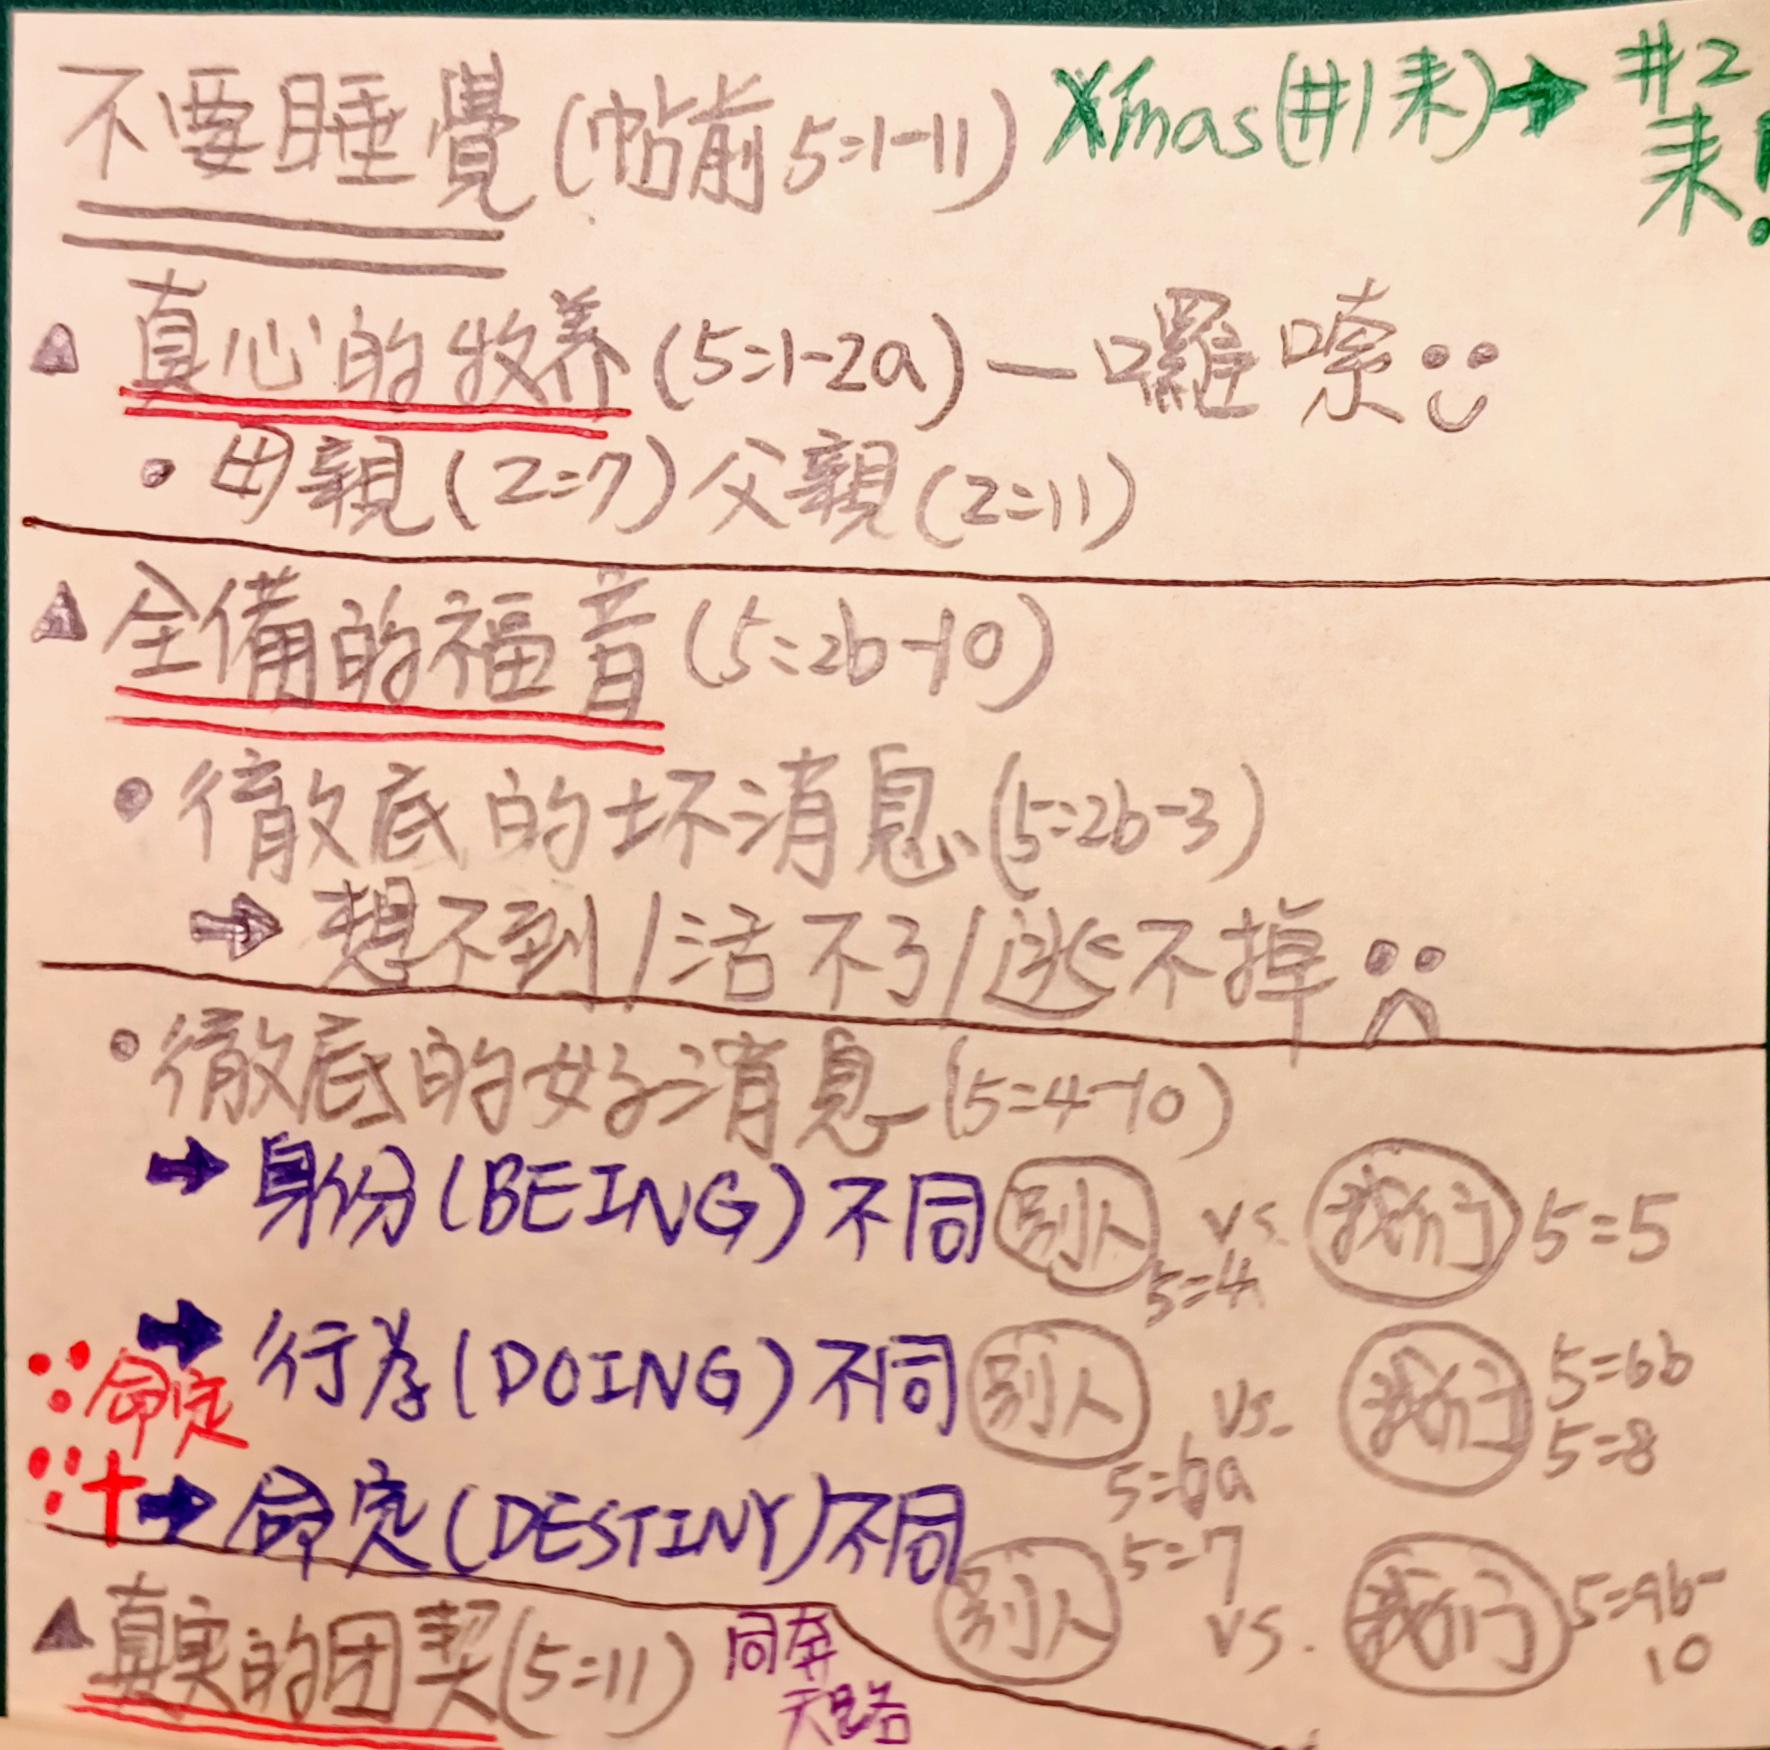 不要睡覺(帖前5:1-11) Xmas(#1来)→ #2
来!
真心的牧养(5:1-2a)—囉嗦
• 母親(2:7)父親(2:11)
全備的福音(5:2b-10)
• 徹底的坏消息(5:2b-3)
→ 想不到/活不了/逃不掉
• 徹底的好消息(5:4-10)
→ 身份(BEING)不同 别人 5:4 vs. 我们 5:5
→ 行为(DOING)不同 别人 5:6a vs. 我们 5:6b 5:8
∵命定
∵十→ 命定(DESTINY)不同 别人 5:7 vs. 我们 5:9b-10
真実的团契(5:11) 同奔
天路